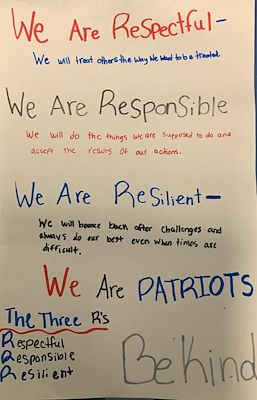 We Are Respectful-
We will treat others the way We want to be treated
We Are Responsible
We will do the things we are supposed to do and
accept the results of our actions.
We Are Resilient-
We will bounce back after challenges and
always do our best even when times are
difficult.
We Are PATRIOTS
The Three R's
Respectful
Responsible
Resilient
Be Kind